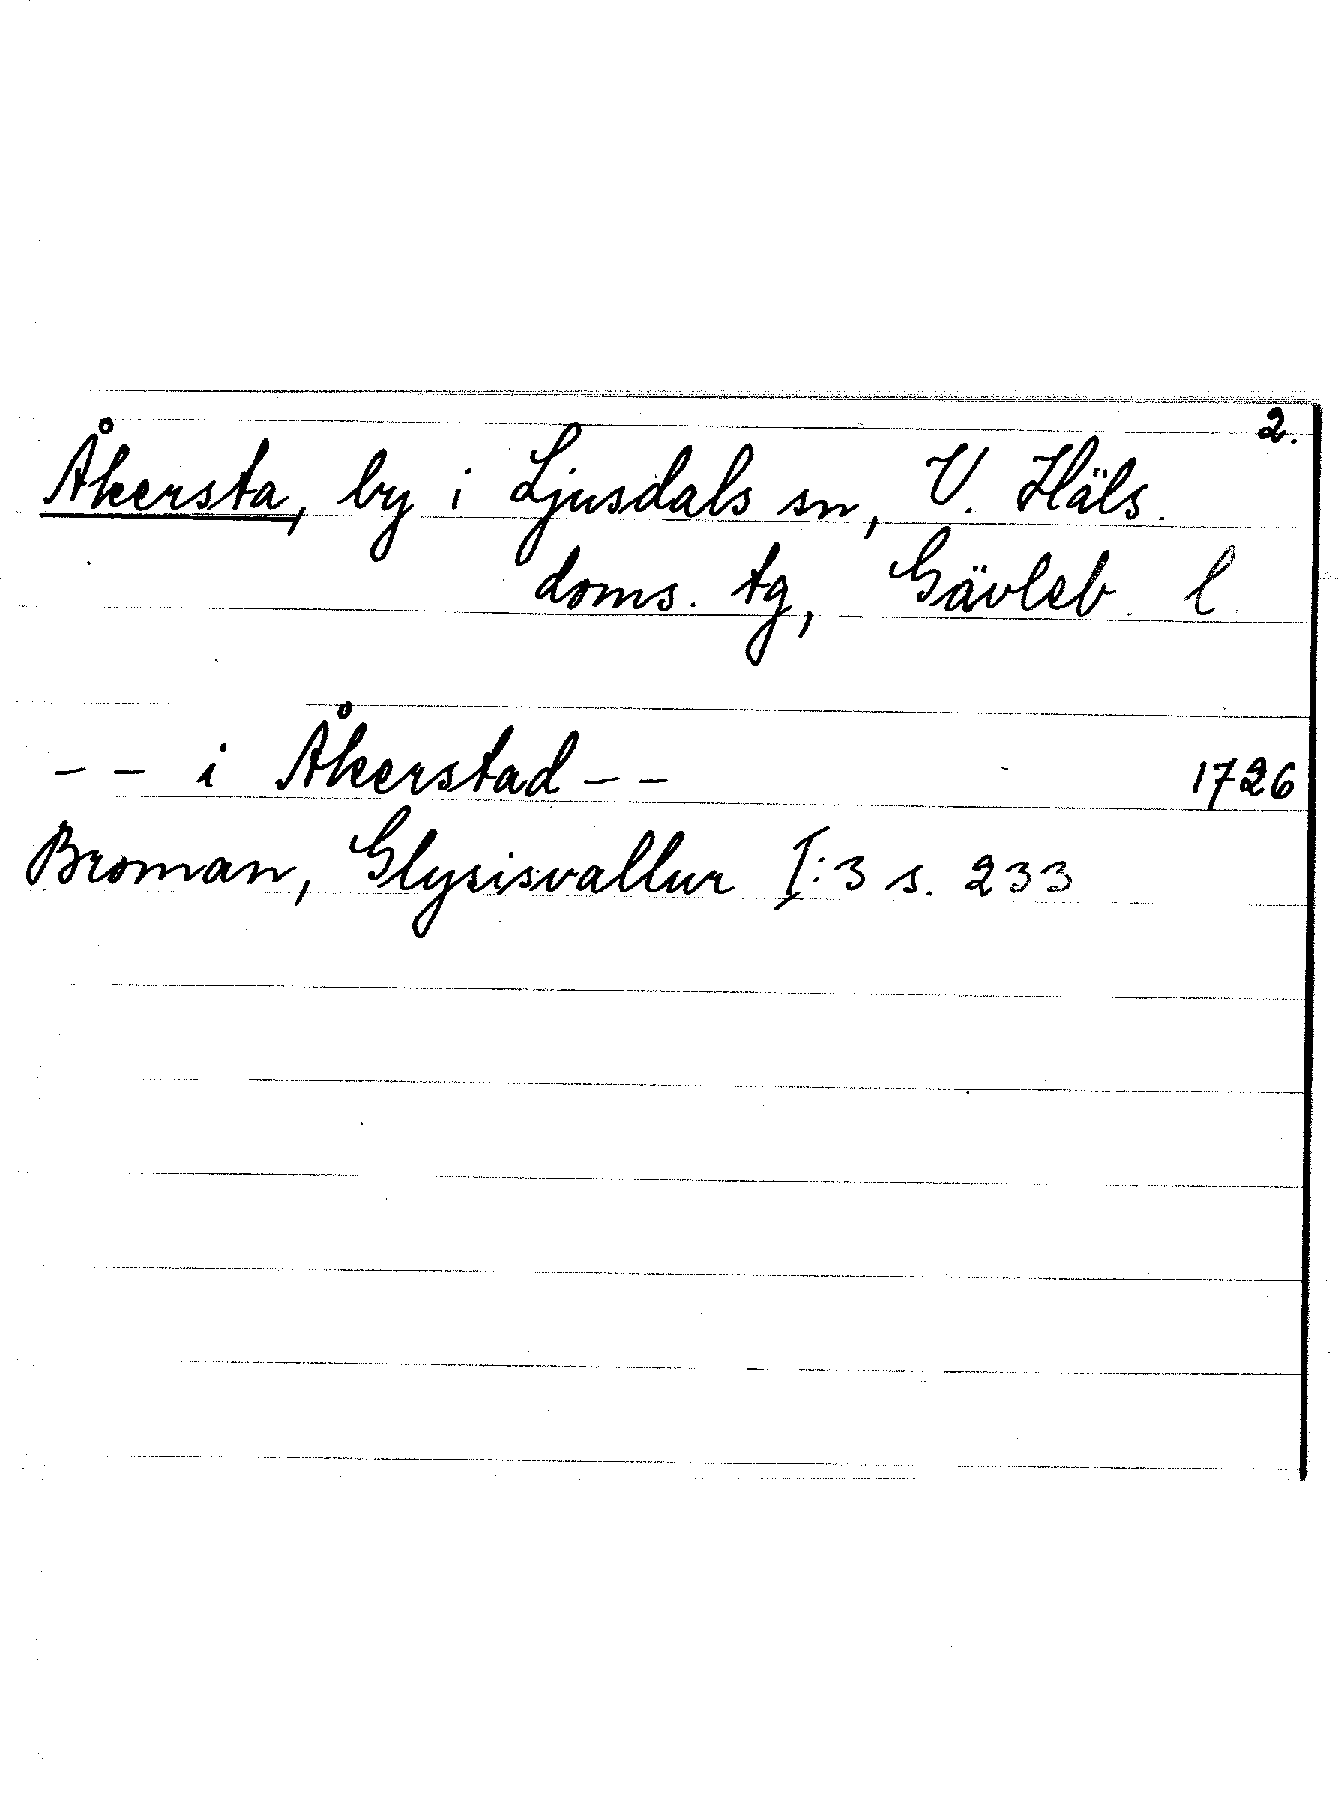 2.
Åkersta, by i Ljusdals sn, V. Häls.
doms. tg, Gävleb. l.
-- i Åkerstad -- 1726
Broman, Glysisvallur I:3 s. 233